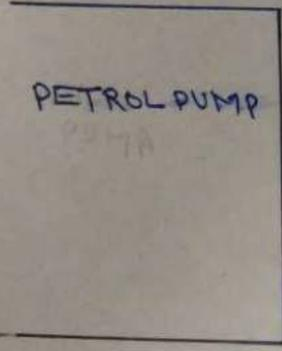 PETROL PUMP